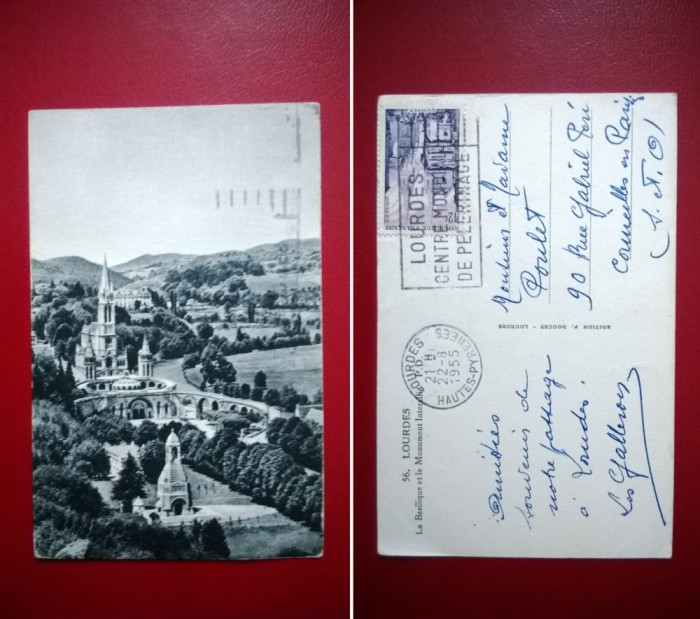 56. LOURDES
La Basilique et le Monument Interallié
Amitiés
souvenir de
notre passage
à Lourdes.
Les Galleron
LOURDES P.D.
21 H
22-8
1955
HAUTES-PYRENEES
EDITION P. DOUCET - LOURDES
LOURDES
CENTRE MONDIAL
DE PELERINAGE
12
REPUBLIQUE FRANÇAISE
Monsieur et Madame
Poulet
90 Rue Gabriel Péri
Cormeilles en Parisis
S. et. O/